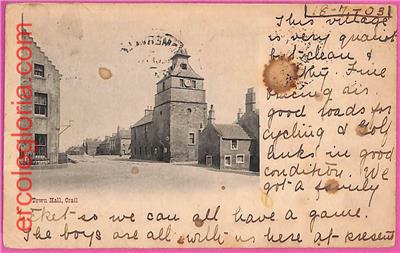 18-7-03
This village
is very quaint
but clean &
healthy. Fine
bracing air.
good roads for
cycling & Golf
Links in good
condition. We
got a family
Ticket so we can all have a game.
The boys are all with us here at present
Town Hall, Crail
ercolegloria.com